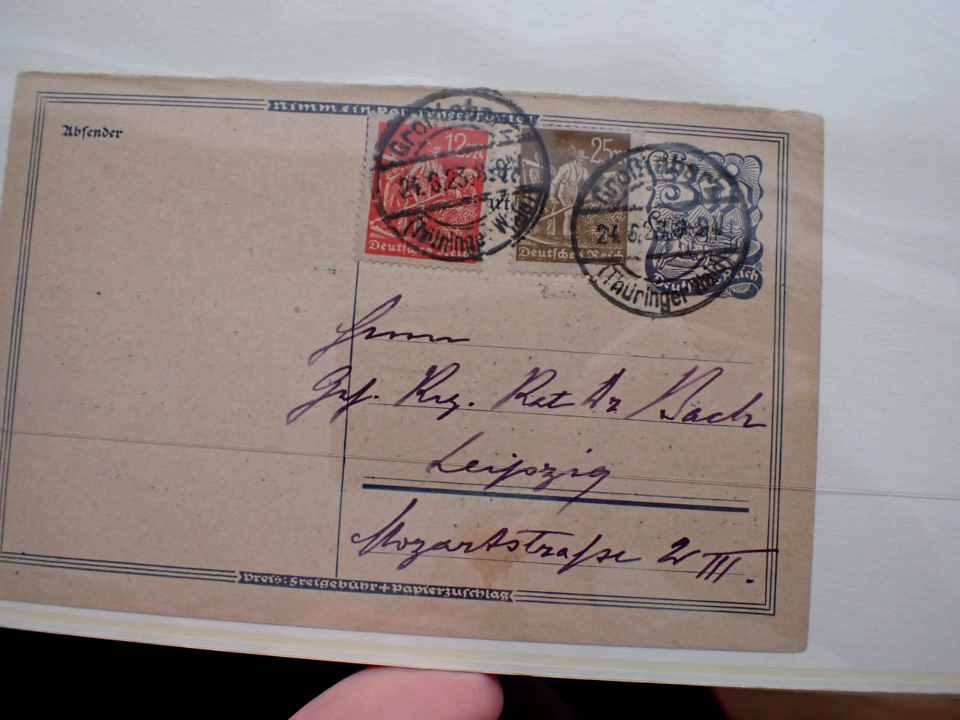 Nimm ein
Absender
12M
Deutsches Reich
25M
Deutsches Reich
Großtabarz
24.6.23.
(Thüringer Wald)
Großtabarz
24.6.23.
(Thüringer Wald)
Deutsches Reich
Herrn
Geh. Reg. Rat Dr Bach
Leipzig
Mozartstraße 2 III.
Preis: Freigebühr + Papierzuschlag